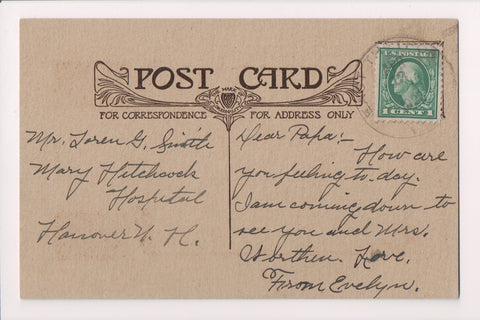 POST CARD
FOR CORRESPONDENCE
FOR ADDRESS ONLY
U.S. POSTAGE
1 CENT 1
Mr. Loren G. Smith
Mary Hitchcock
Hospital
Hanover N. H.
Dear Papa:-
How are
you feeling to-day.
I am coming down to
see you and Mrs.
Worthen. Love.
From Evelyn.